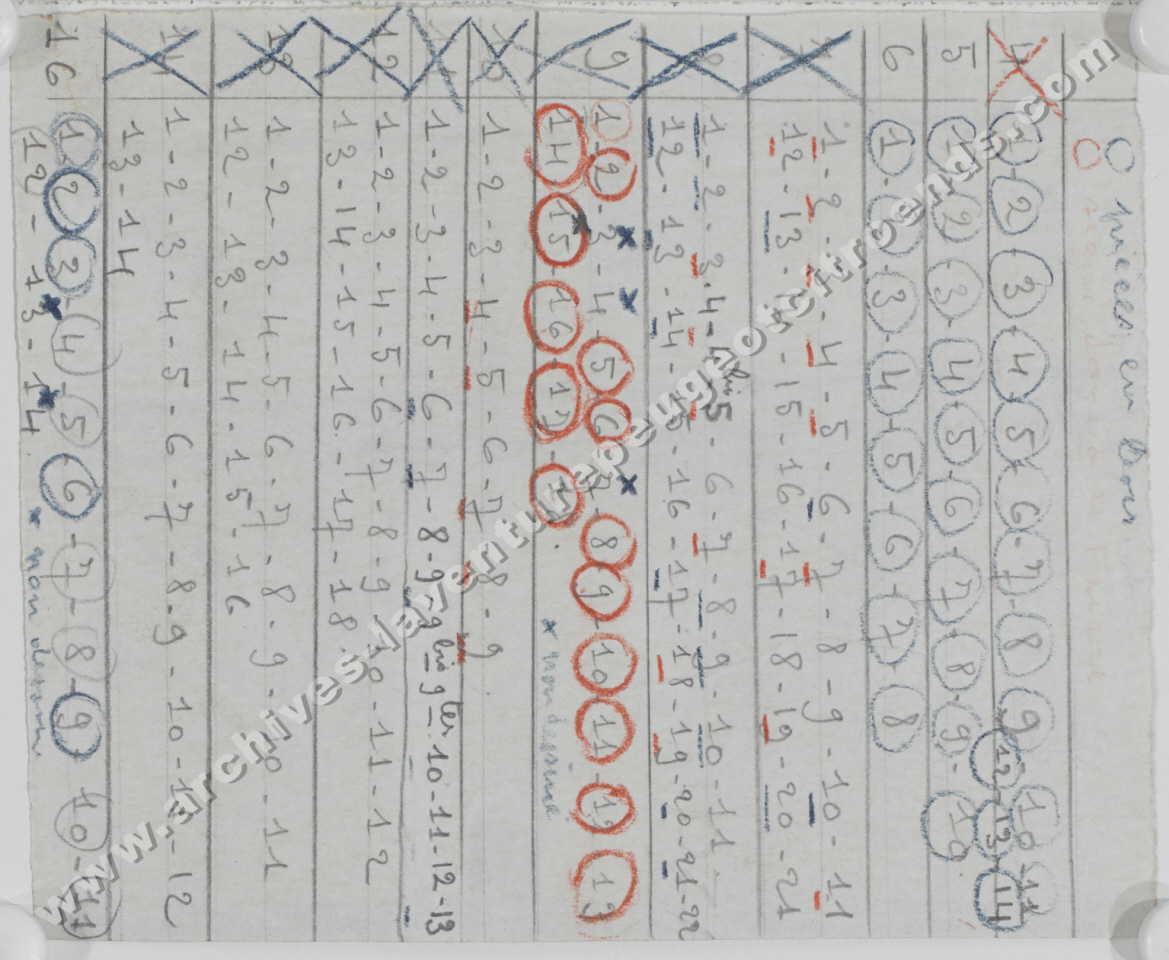 O pièces en cours
O
4 1-2-3-4-5-6-7-8-9-10-11
12-13-14
5 1-2-3-4-5-6-7-8-9-10
6 1-2-3-4-5-6-7-8
7 1-2-3-4-5-6-7-8-9-10-11
12-13-14-15-16-17-18-19-20-21
8 1-2-3-4-4bis 5-6-7-8-9-10-11
12-13-14-15-16-17-18-19-20-21-22
9 1-2-3-4-5-6-7-8-9-10-11-12-13
14-15-16-17-18.
x non dessiné
10 1-2-3-4-5-6-7-8-9
11 1-2-3-4-5-6-7-8-9-9bis 9ter.10-11-12-13
12 1-2-3-4-5-6-7-8-9-10-11-12
13-14-15-16-17-18.
13 1-2-3-4-5-6-7-8-9-10-11
12-13-14-15-16
14 1-2-3-4-5-6-7-8-9-10-11-12
13-14
16 1-2-3-4-5-6-7-8-9-10-11
12-13-14. x non dessiné
www.archives-laventurepeugeotcitroends.com